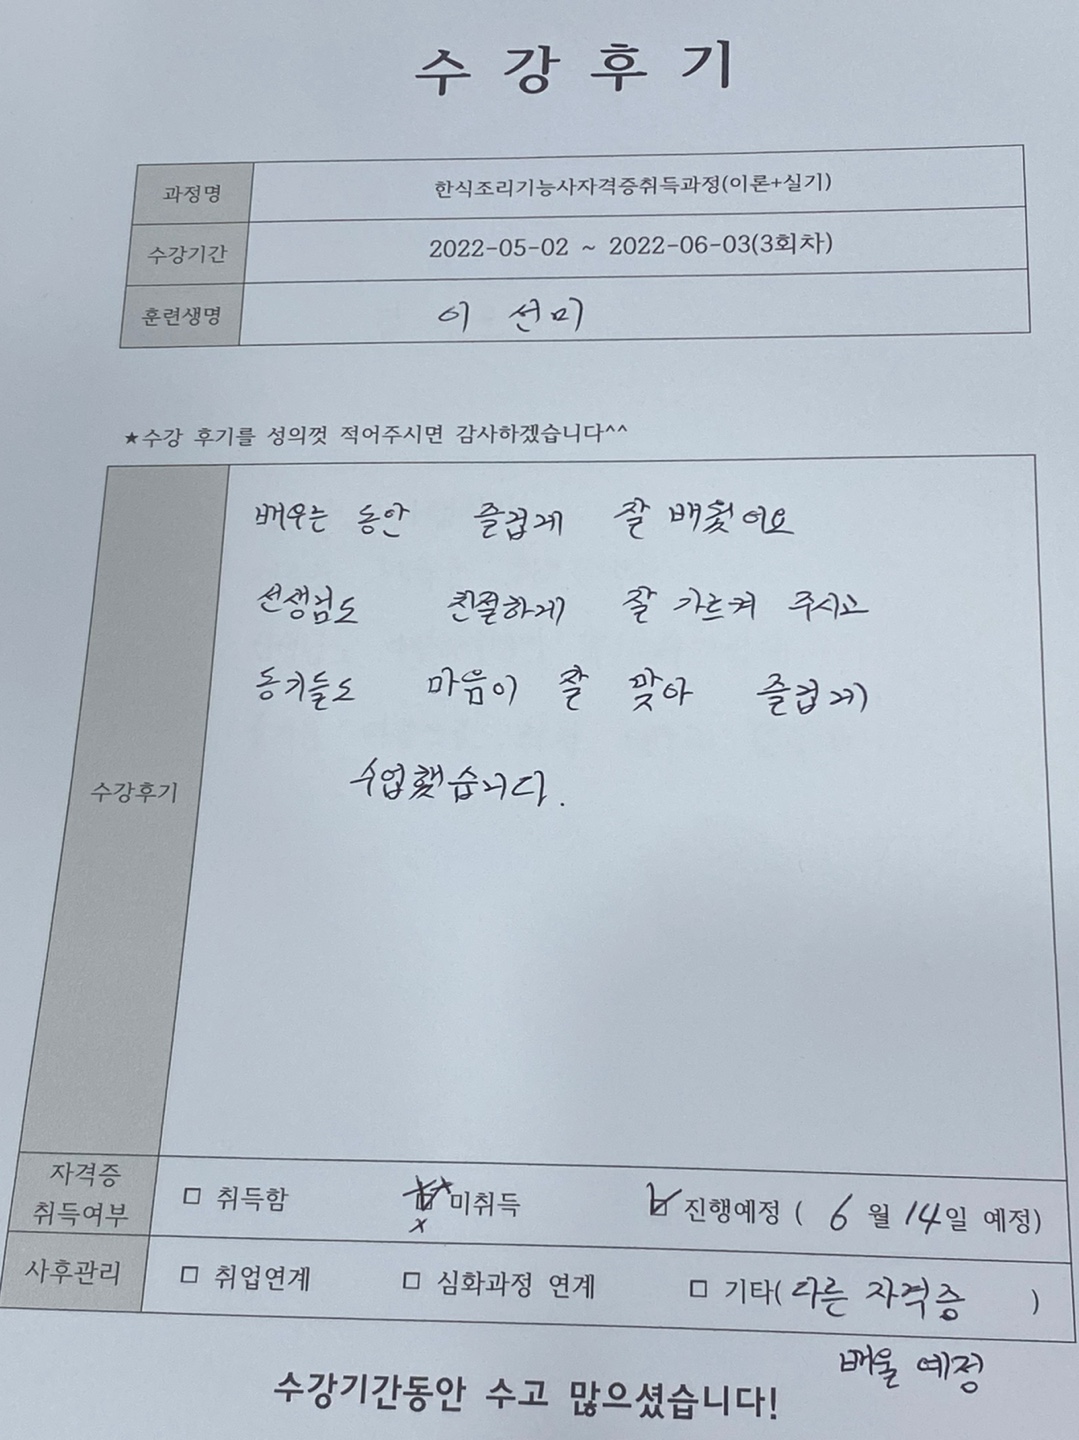 수강후기
과정명 한식조리기능사자격증취득과정(이론+실기)
수강기간 2022-05-02 ~ 2022-06-03(3회차)
훈련생명 이 선미
★수강 후기를 성의껏 적어주시면 감사하겠습니다^^
배우는 동안 즐겁게 잘 배웠어요
선생님도 친절하게 잘 가르켜 주시고
동기들도 마음이 잘 맞아 즐겁게
수강후기
수업했습니다.
자격증 취득여부 □ 취득함 □ 미취득 ☑ 진행예정 ( 6월 14일 예정)
사후관리 □ 취업연계 □ 심화과정 연계 □ 기타( 다른 자격증 )
배울 예정
수강기간동안 수고 많으셨습니다!